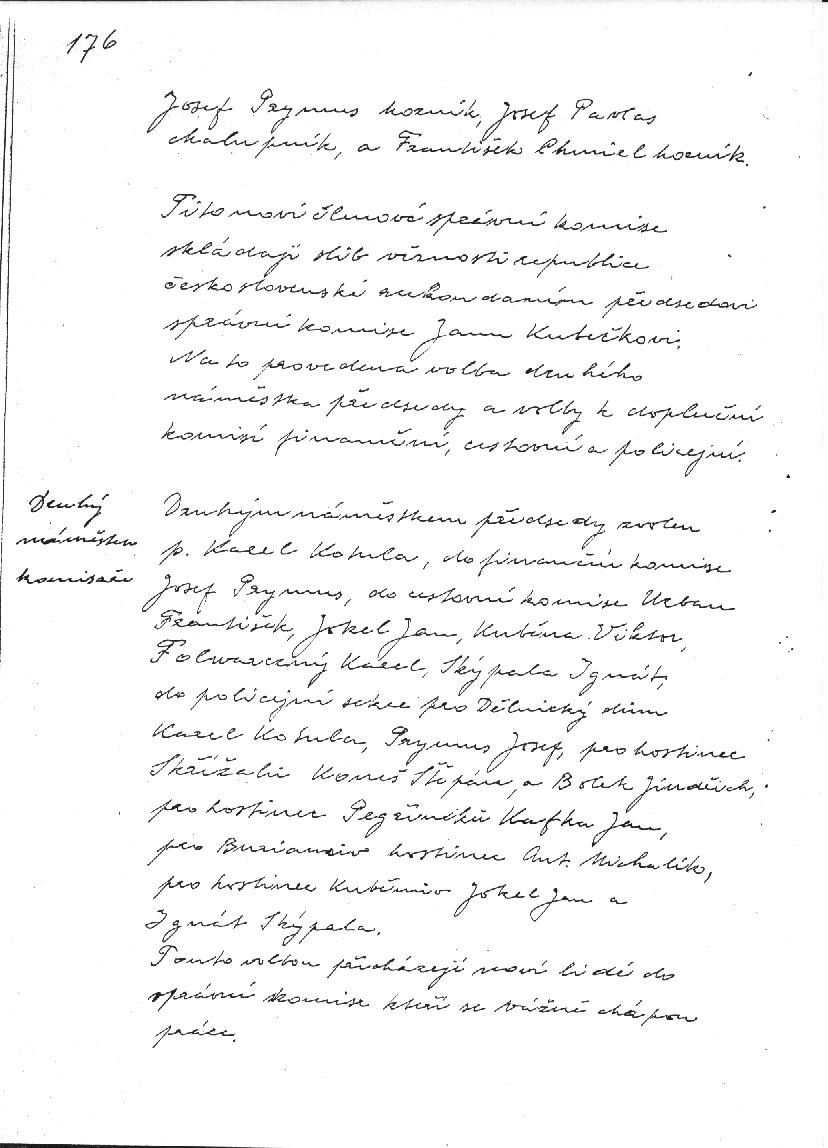 176
Josef Prymus horník, Josef Pavlas
chalupník, a František Chmiel horník.
Tito noví členové správní komise
skládají slib věrnosti republice
československé rukou dáním předsedovi
správní komise Janu Kubečkovi.
Na to provedena volba druhého
náměstka předsedy a volby k doplnění
komisí finanční, cestovní a policejní.
Druhý
náměstek
komisaře
Druhým náměstkem předsedy zvolen
p. Karel Košula, do finanční komise
Josef Prymus, do cestovní komise Urban
František, Jokel Jan, Kuběna Viktor,
Folwarczný Karel, Skýpala Ignát,
do policejní sekce pro Dělnický dům
Karel Košula, Prymus Josef, pro hostinec
Skřížalů Koneš Štěpán, a Bolek Jindřich,
pro hostinec Pegřimků Kafka Jan,
pro Burianův hostinec Ant. Michalik,
pro hostinec Kuběniův Jokel Jan a
Ignát Skýpala.
Touto volbou přicházejí noví lidé do
správní komise kteří se vážně chápou
práce.